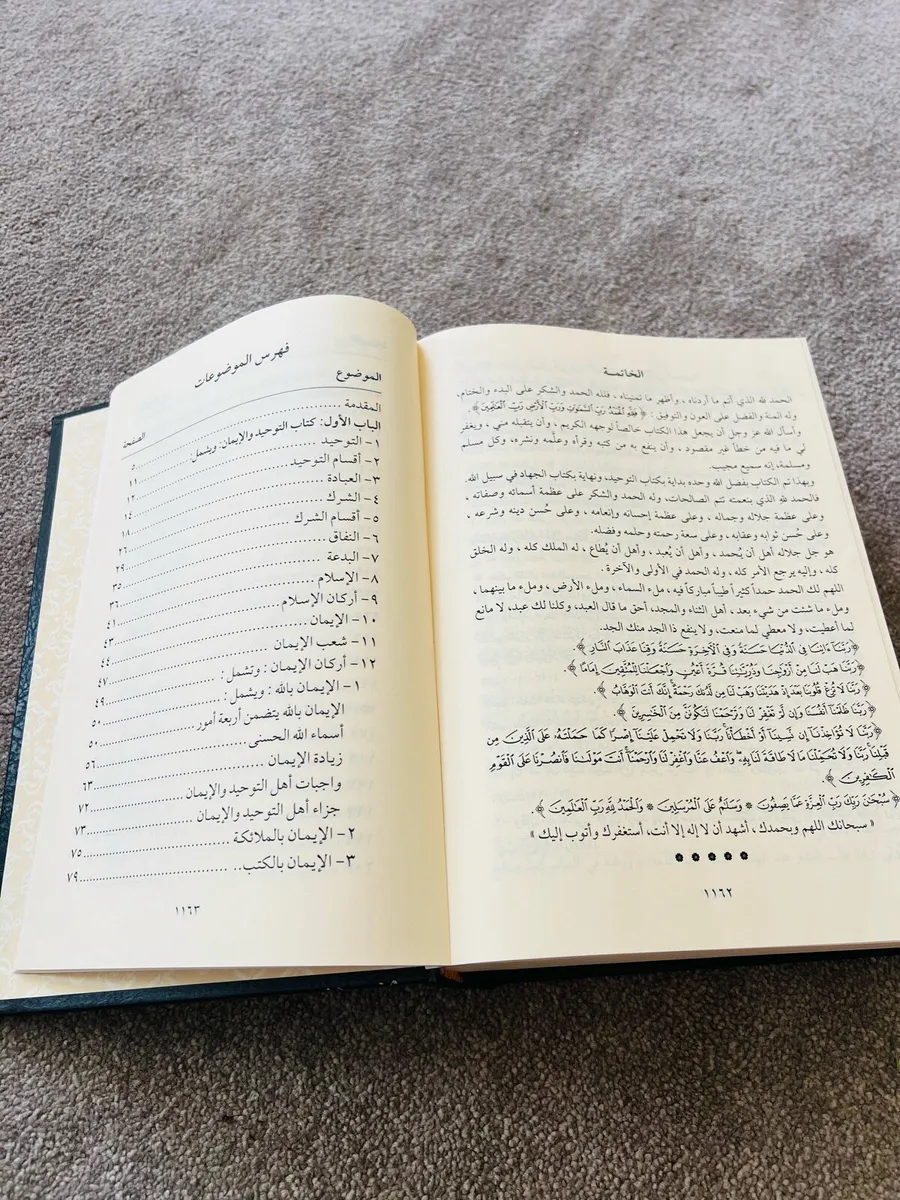 الخاتمة
الحمد لله الذي أتم ما أردناه ، وأظهر ما تمنيناه ، فلله الحمد والشكر على البدء والختام،
وله المنة والفضل على العون والتوفيق : ﴿ فَلِلَّهِ الْحَمْدُ رَبِّ السَّمَٰوَٰتِ وَرَبِّ الْأَرْضِ رَبِّ الْعَٰلَمِينَ ﴾.
وأسأل الله عز وجل أن يجعل هذا الكتاب خالصاً لوجهه الكريم ، وأن يتقبله مني ، ويغفر
لي ما فيه من خطأ غير مقصود ، وأن ينفع به من كتبه وقرأه وعلَّمه ونشره، وكل مسلم
ومسلمة، إنه سميع مجيب.
وبهذا تم الكتاب بفضل الله وحده بداية بكتاب التوحيد، ونهاية بكتاب الجهاد في سبيل الله.
فالحمد لله الذي بنعمته تتم الصالحات، وله الحمد والشكر على عظمة أسمائه وصفاته ،
وعلى عظمة جلاله وجماله ، وعلى عظمة إحسانه وإنعامه ، وعلى حُسن دينه وشرعه ،
وعلى حسن ثوابه وعقابه ، وعلى سعة رحمته وحلمه وفضله.
هو جل جلاله أهل أن يُحمد ، وأهل أن يُعبد ، وأهل أن يُطاع ، له الملك كله ، وله الخلق
كله ، وإليه يرجع الأمر كله ، وله الحمد في الأولى والآخرة .
اللهم لك الحمد حمداً كثيراً طيباً مباركاً فيه ، ملء السماء، وملء الأرض ، وملء ما بينهما ،
وملء ما شئت من شيء بعد ، أهل الثناء والمجد، أحق ما قال العبد، وكلنا لك عبد، لا مانع
لما أعطيت، ولا معطي لما منعت، ولا ينفع ذا الجد منك الجد.
﴿ رَبَّنَا ءَاتِنَا فِي الدُّنْيَا حَسَنَةً وَفِي الْأَخِرَةِ حَسَنَةً وَقِنَا عَذَابَ النَّارِ ﴾.
﴿ رَبَّنَا هَبْ لَنَا مِنْ أَزْوَٰجِنَا وَذُرِّيَّٰتِنَا قُرَّةَ أَعْيُنٍ وَاجْعَلْنَا لِلْمُتَّقِينَ إِمَامًا ﴾.
﴿ رَبَّنَا لَا تُزِغْ قُلُوبَنَا بَعْدَ إِذْ هَدَيْتَنَا وَهَبْ لَنَا مِن لَّدُنكَ رَحْمَةً إِنَّكَ أَنتَ الْوَهَّابُ ﴾
﴿ رَبَّنَا ظَلَمْنَا أَنفُسَنَا وَإِن لَّمْ تَغْفِرْ لَنَا وَتَرْحَمْنَا لَنَكُونَنَّ مِنَ الْخَٰسِرِينَ ﴾.
﴿ رَبَّنَا لَا تُؤَاخِذْنَا إِن نَّسِينَا أَوْ أَخْطَأْنَا رَبَّنَا وَلَا تَحْمِلْ عَلَيْنَا إِصْرًا كَمَا حَمَلْتَهُ عَلَى الَّذِينَ مِن
قَبْلِنَا رَبَّنَا وَلَا تُحَمِّلْنَا مَا لَا طَاقَةَ لَنَا بِهِ وَاعْفُ عَنَّا وَاغْفِرْ لَنَا وَارْحَمْنَا أَنتَ مَوْلَىٰنَا فَانصُرْنَا عَلَى الْقَوْمِ
الْكَٰفِرِينَ ﴾.
﴿ سُبْحَٰنَ رَبِّكَ رَبِّ الْعِزَّةِ عَمَّا يَصِفُونَ * وَسَلَٰمٌ عَلَى الْمُرْسَلِينَ * وَالْحَمْدُ لِلَّهِ رَبِّ الْعَٰلَمِينَ ﴾.
« سبحانك اللهم وبحمدك ، أشهد أن لا إله إلا أنت، أستغفرك وأتوب إليك »
١١٦٢
فهرس الموضوعات
الموضوع الصفحة
المقدمة ٥
الباب الأول: كتاب التوحيد والإيمان. ويشمل: ١١
١- التوحيد ١٢
٢- أقسام التوحيد ١٤
٣- العبادة ١٨
٤- الشرك ٢٦
٥- أقسام الشرك ٢٩
٦- النفاق ٣٥
٧- البدعة ٣٦
٨- الإسلام ٤١
٩- أركان الإسلام ٤٣
١٠- الإيمان ٤٤
١١- شعب الإيمان ٤٧
١٢- أركان الإيمان : وتشمل : ٤٩
١- الإيمان بالله : ويشمل : ٥٠
الإيمان بالله يتضمن أربعة أمور ٥٠
أسماء الله الحسنى ٥٦
زيادة الإيمان ٦٣
واجبات أهل التوحيد والإيمان ٧٢
جزاء أهل التوحيد والإيمان ٧٣
٢- الإيمان بالملائكة ٧٥
٣- الإيمان بالكتب ٧٩
١١٦٣